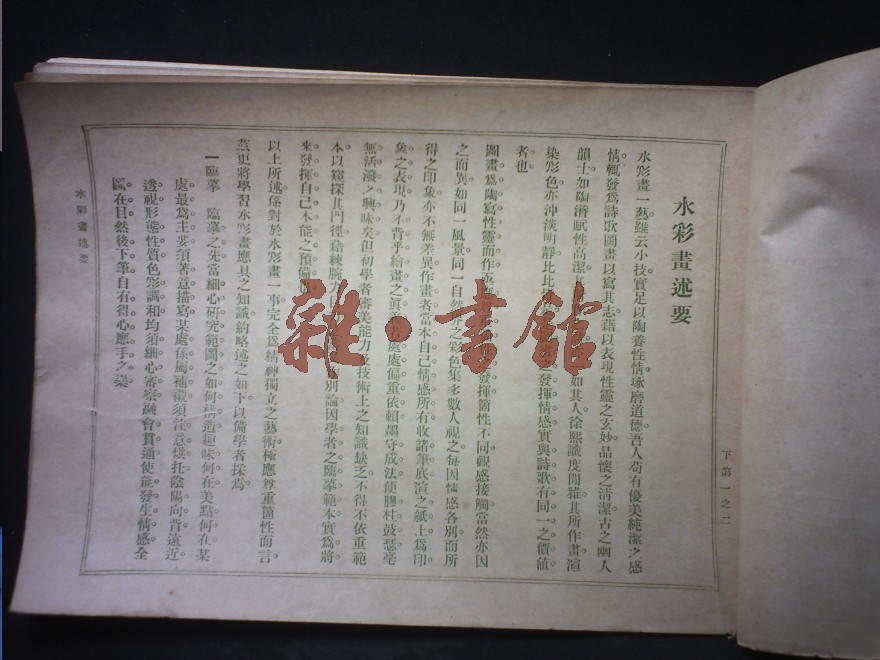 水彩畫述要
水彩畫一藝雖云小技實足以陶養性情琢磨道德吾人苟有優美純潔之感
情輒發爲詩歌圖畫以寫其志藉以表現性靈之玄妙品懷之清潔古之幽人
韻士如陶濟賦性高潔 如其人徐熙識度閒雅其所作畫渲
染彩色亦沖淡明靜比比 發揮情感實與詩歌有同一之價値
者也
圖畫爲陶寫性靈而作 發揮箇性不同觀感接觸當然亦因
之而異如同一風景同一自然界之彩色集多數人視之每因情感各別而所
得之印象亦不無差異作畫者當本自己情感所有收諸筆底渲之紙上爲印
象之表現乃不背乎繪畫之眞美若處處偏重依賴墨守成法便膠柱鼓瑟毫
無活潑之興味矣但初學者審美能力及技術上之知識缺乏不得不依重範
本以窺探其門徑藉練腕力 別論因學者之臨摹範本實爲將
來發揮自己本能之預備
以上所述係對於水彩畫一事完全爲精神獨立之藝術極應尊重箇性而言
茲更將學習水彩畫應具之知識約略述之如下以備學者採焉
一臨摹 臨摹之先當細心研究範圖之如何構造趣味何在美點何在某
處最爲主要須著意描寫某處係屬補襯須注意烘托陰陽向背遠近
透視形態性質色彩調和均須細心審察融會貫通使能發生情感全
圖在目然後下筆自有得心應手之樂
水彩畫述要
下第一之二
雜·書館